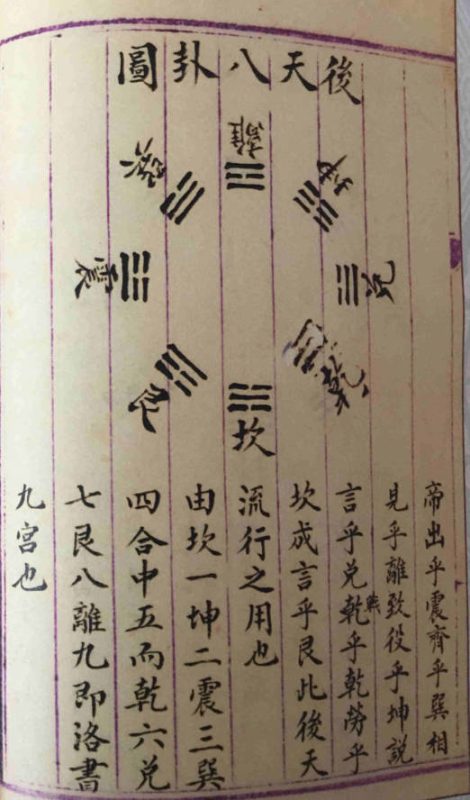 後天八卦圖
離
坤
兌
乾
坎
艮
震
巽
帝出乎震齊乎巽相
見乎離致役乎坤說
言乎兌乾乎乾勞乎
戰
坎成言乎艮此後天
流行之用也
由坎一坤二震三巽
四合中五而乾六兌
七艮八離九即洛書
九宮也